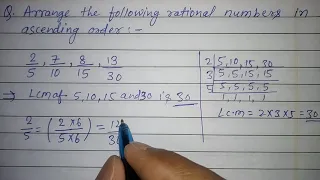 Q. Arrange the following rational numbers in
ascending order:-
2/5, 7/10, 8/15, 13/30
2 | 5,10,15,30
3 | 5,5,15,15
5 | 5,5,5,5
1,1,1,1
→ Lcm of 5,10,15 and 30 is 30
Lc.m = 2×3×5=30
2/5 = (2×6/5×6) = 12/30